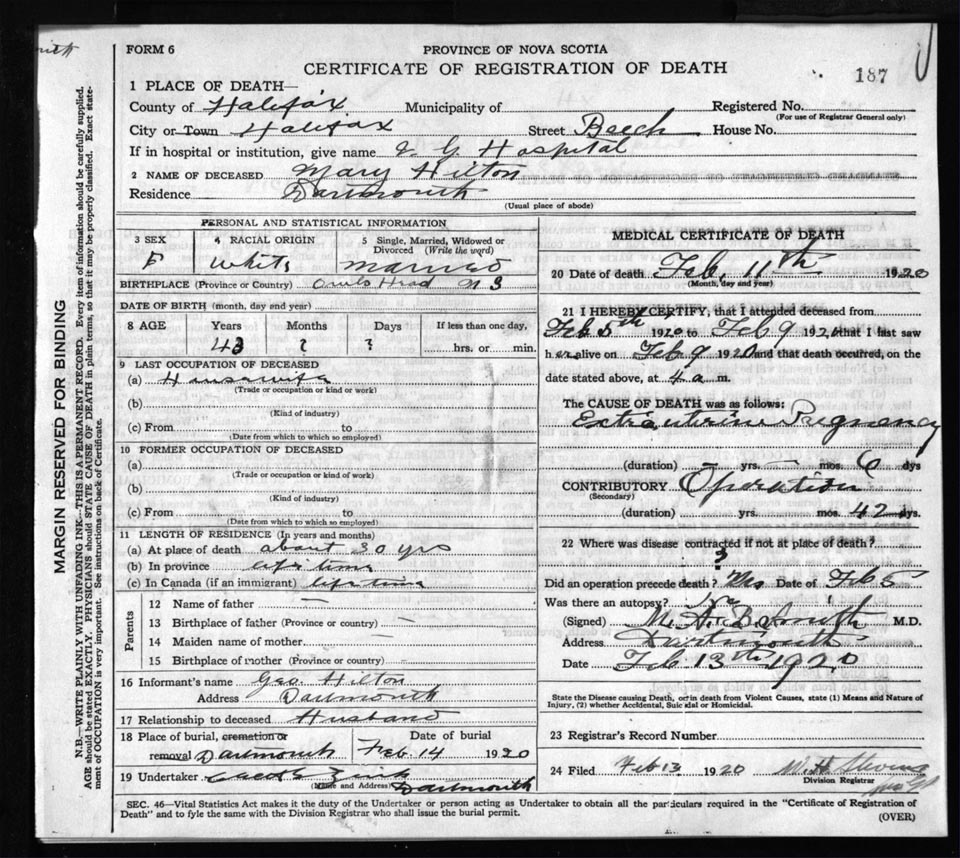 FORM 6
PROVINCE OF NOVA SCOTIA
CERTIFICATE OF REGISTRATION OF DEATH
187
1 PLACE OF DEATH—
County of Halifax Municipality of Registered No.
(For use of Registrar General only)
City or Town Halifax Street Beech House No.
If in hospital or institution, give name V. G. Hospital
2 NAME OF DECEASED Mary Hilton
Residence Dartmouth
(Usual place of abode)
PERSONAL AND STATISTICAL INFORMATION
3 SEX 4 RACIAL ORIGIN 5 Single, Married, Widowed or Divorced (Write the word)
F White Married
BIRTHPLACE (Province or Country) Owls Head N S
DATE OF BIRTH (month, day and year)
8 AGE Years Months Days If less than one day,
43 ? ? hrs. or min.
9 LAST OCCUPATION OF DECEASED
(a) Housewife
(Trade or occupation or kind or work)
(b)
(Kind of industry)
(c) From to
(Date from which to which so employed)
10 FORMER OCCUPATION OF DECEASED
(a)
(Trade or occupation or kind of work)
(b)
(Kind of industry)
(c) From to
(Date from which to which so employed)
11 LENGTH OF RESIDENCE (In years and months)
(a) At place of death about 30 yrs
(b) In province life time
(c) In Canada (if an immigrant) life time
Parents
12 Name of father —
13 Birthplace of father (Province or country) —
14 Maiden name of mother —
15 Birthplace of mother (Province or country) —
16 Informant's name Geo. Hilton
Address Dartmouth
17 Relationship to deceased Husband
18 Place of burial, cremation or removal Dartmouth Date of burial Feb. 14 1920
19 Undertaker
(Name and Address) Dartmouth
MEDICAL CERTIFICATE OF DEATH
20 Date of death Feb. 11th 1920
(Month, day and year)
21 I HEREBY CERTIFY, that I attended deceased from
Feb 5th 1920 to Feb 9 1920 that I last saw
her alive on Feb 9 1920 and that death occurred, on the
date stated above, at 4 a m.
The CAUSE OF DEATH was as follows:
Extrauterine Pregnancy
(duration) yrs. mos. 6 dys
CONTRIBUTORY Operation
(Secondary)
(duration) yrs. mos. dys.
22 Where was disease contracted if not at place of death?
?
Did an operation precede death? Yes Date of Feb 5
Was there an autopsy?
(Signed) M.D.
Address Dartmouth
Date Feb 13th 1920
State the Disease causing Death, or in death from Violent Causes, state (1) Means and Nature of
Injury, (2) whether Accidental, Suicidal or Homicidal.
23 Registrar's Record Number
24 Filed Feb 13 1920
Division Registrar
SEC. 46—Vital Statistics Act makes it the duty of the Undertaker or person acting as Undertaker to obtain all the particulars required in the "Certificate of Registration of
Death" and to fyle the same with the Division Registrar who shall issue the burial permit.
(OVER)
MARGIN RESERVED FOR BINDING
N.B.—WRITE PLAINLY WITH UNFADING INK—THIS IS A PERMANENT RECORD. Every item of information should be carefully supplied.
AGE should be stated EXACTLY. PHYSICIANS should STATE CAUSE OF DEATH in plain terms, so that it may be properly classified. Exact state-
ment of OCCUPATION is very important. See instructions on back of Certificate.